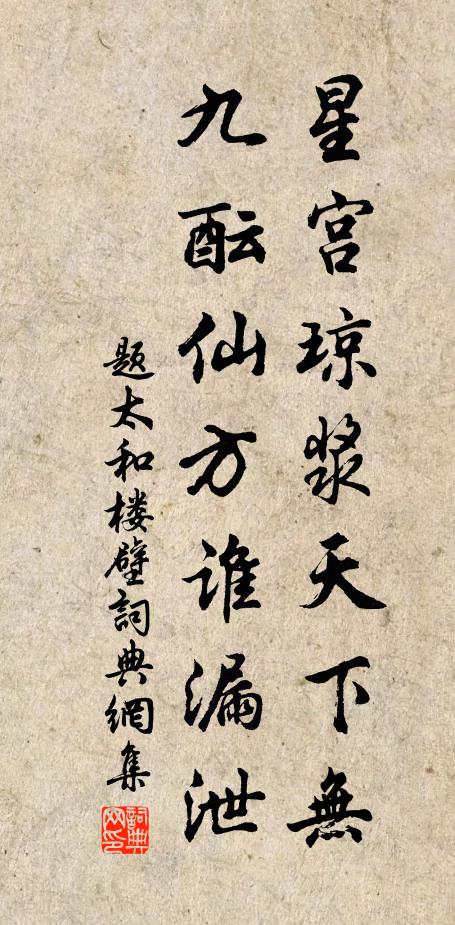 星宫琼浆天下無
九酝仙方谁漏泄
题太和楼壁詞典網集
詞典网印